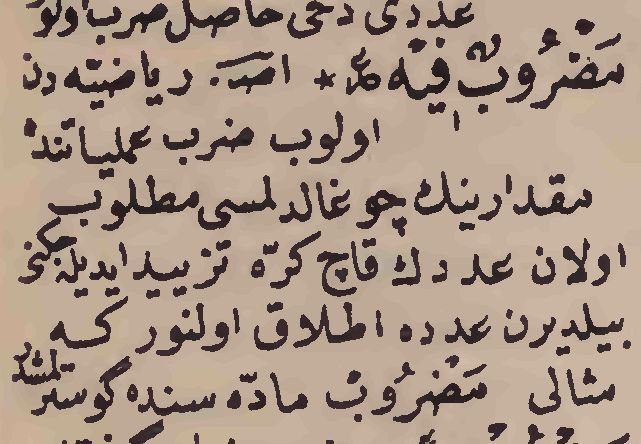 عددى دخى حاصل ضرب اولو
مَضْرُوبٌ فيه * اصـ. رياضيّه دن
اولوب ضرب عملياتنده
مقدارينك چوغالدلمسى مطلوب
اولان عددك قاچ كرّه تزييد ايديله جكنى
بيلديرن عدده اطلاق اولنور كه
مثالى مَضْرُوبْ مادّه سنده گوسترلمشدر